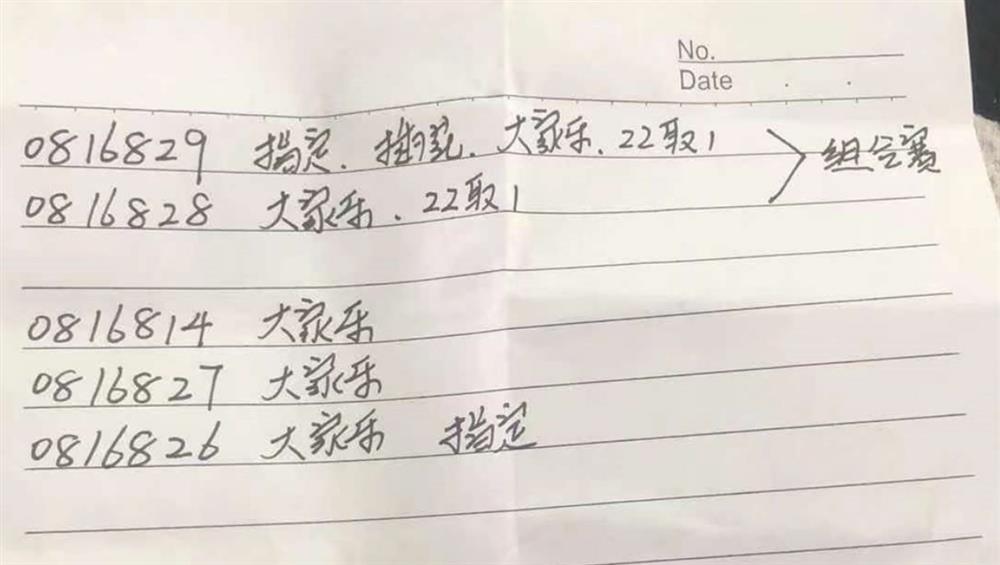 No.
Date
0816829 指定. 插组. 大家乐. 22取1 组合赛
0816828 大家乐. 22取1
0816814 大家乐
0816827 大家乐
0816826 大家乐 指定